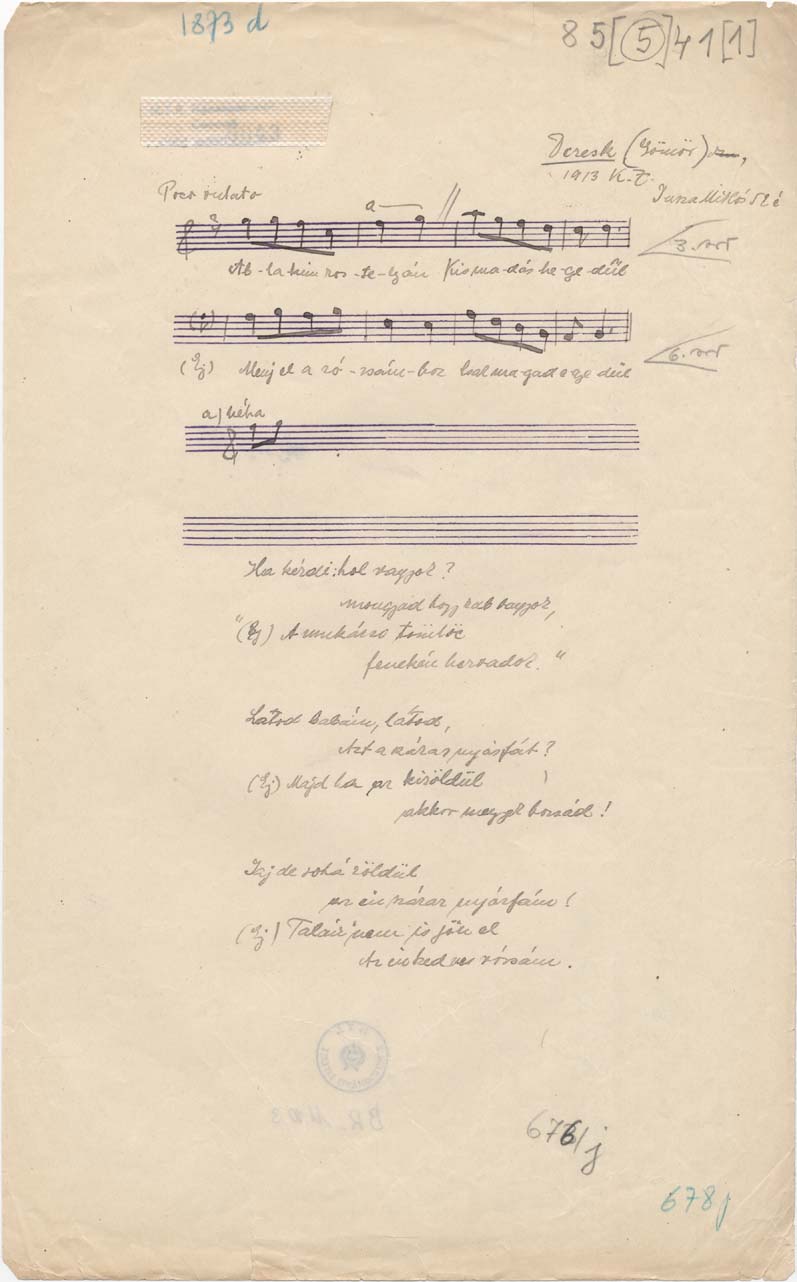 1873 d
85[(5)]41[1]
Deresk (Gömör)
1913 K. Z.
Poco rubato
a
Ab-la-kim ros-te-lyán Kis ma-dár he-ge-dűl
3. sort
(Ej) Menj el a ró-zsám-hoz Csal ma-gad e-ge-dűl
6. sort
a) néha
Ha kérdi: hol vagyok?
mongyad hogy rab vagyok,
"(Ej) A munkácsi tömlöc
fenekén hervadok."
Látod babám, látod,
Azt a száraz nyárfát?
(Ej) Majd ha az kizöldűl
akkor megyek hozzád!
Jaj de soha zöldűl
az én száraz nyárfám!
(Ej) Talán nem is jön el
Az én kedves rózsám.
BR
676/j
678 j